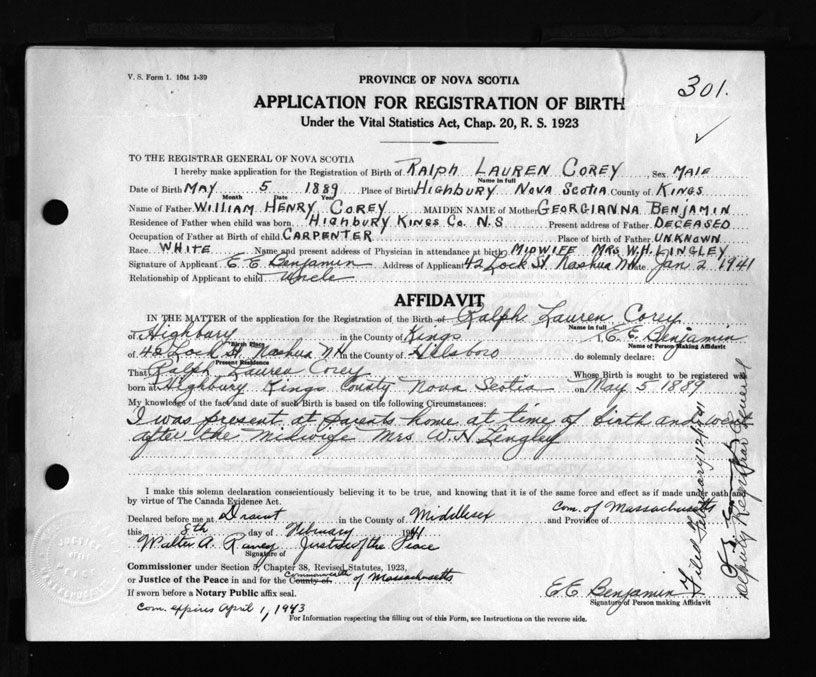 V. S. Form 1. 10M 1-39
PROVINCE OF NOVA SCOTIA
301.
APPLICATION FOR REGISTRATION OF BIRTH
Under the Vital Statistics Act, Chap. 20, R. S. 1923
TO THE REGISTRAR GENERAL OF NOVA SCOTIA
I hereby make application for the Registration of Birth of RALPH LAUREN COREY Sex MALE
Name in full
Date of Birth MAY 5 1889 Place of Birth HIGHBURY NOVA SCOTIA County of KINGS
Month Date Year
Name of Father WILLIAM HENRY COREY MAIDEN NAME of Mother GEORGIANNA BENJAMIN
Residence of Father when child was born HIGHBURY KINGS CO. N.S Present address of Father DECEASED
Occupation of Father at Birth of child CARPENTER Place of birth of Father UNKNOWN
Race WHITE Name and present address of Physician in attendance at birth MIDWIFE MRS W.H. LINGLEY
Signature of Applicant E E Benjamin Address of Applicant 42 Lock St Nashua NH Date Jan 2 1941
Relationship of Applicant to child Uncle
AFFIDAVIT
IN THE MATTER of the application for the Registration of the Birth of Ralph Lauren Corey
Name in full
of Highbury in the County of Kings I, E. E. Benjamin
Birth Place Name of Person Making Affidavit
of 42 Lock St Nashua NH in the County of Hillsboro do solemnly declare:
Present Residence
That Ralph Lauren Corey Whose Birth is sought to be registered was
born at Highbury Kings County Nova Scotia on May 5 1889
My knowledge of the fact and date of such Birth is based on the following Circumstances:
I was present at parents home at time of birth and went
after the Midwife Mrs W. H Lingley
I make this solemn declaration conscientiously believing it to be true, and knowing that it is of the same force and effect as if made under oath and
by virtue of The Canada Evidence Act.
Declared before me at Dracut in the County of Middlesex and Province of Com. of Massachusetts
this 8th day of February 1941
Walter A. Justice of the Peace
Signature of
Commissioner under Section 3, Chapter 38, Revised Statutes, 1923,
or Justice of the Peace in and for the County of Commonwealth of Massachusetts
If sworn before a Notary Public affix seal.
E. E. Benjamin
Signature of Person making Affidavit
Com. expires April 1, 1943
For Information respecting the filling out of this Form, see Instructions on the reverse side.
Filed February 12/1941
Deputy Registrar General